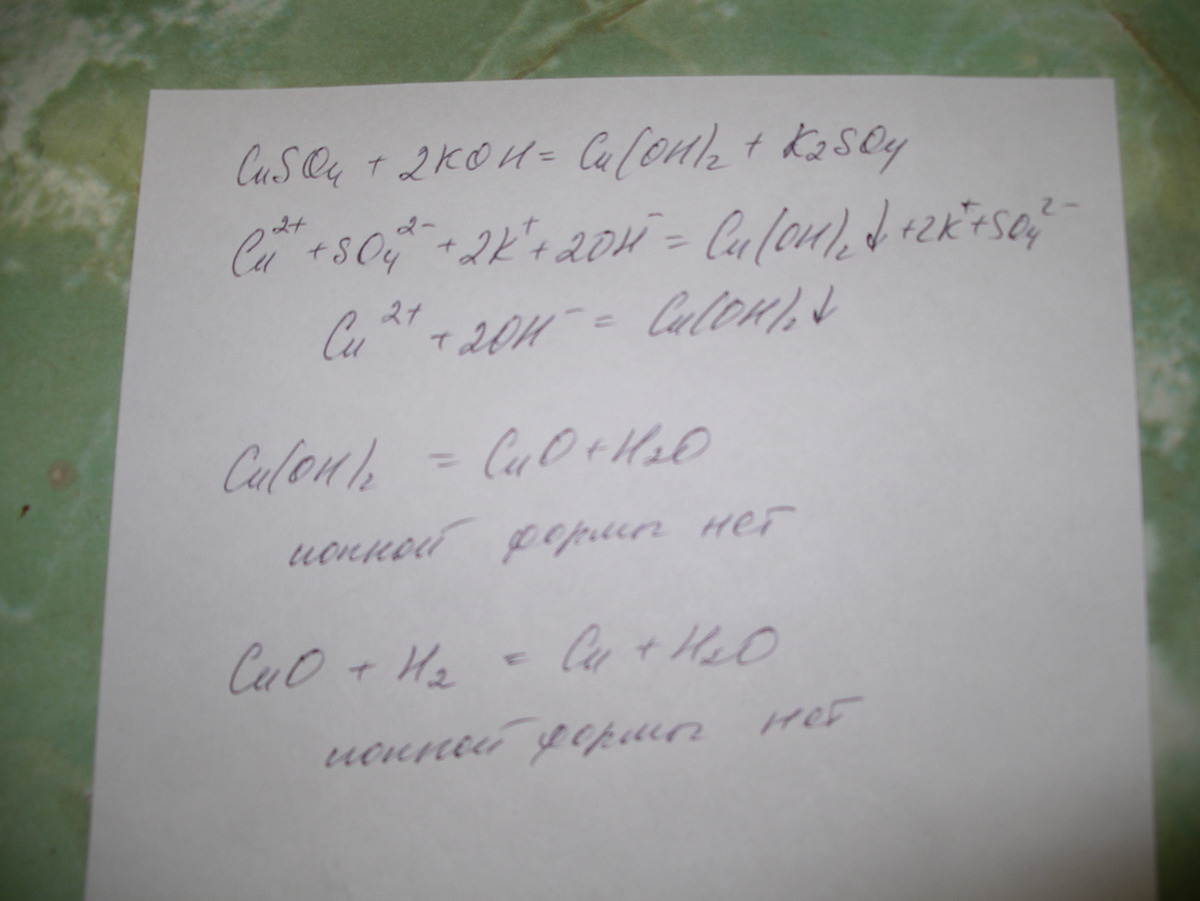 CuSO₄ + 2KOH = Cu(OH)₂ + K₂SO₄
Cu²⁺ + SO₄²⁻ + 2K⁺ + 2OH⁻ = Cu(OH)₂↓ + 2K⁺ + SO₄²⁻
Cu²⁺ + 2OH⁻ = Cu(OH)₂↓
Cu(OH)₂ = CuO + H₂O
ионной формы нет
CuO + H₂ = Cu + H₂O
ионной формы нет